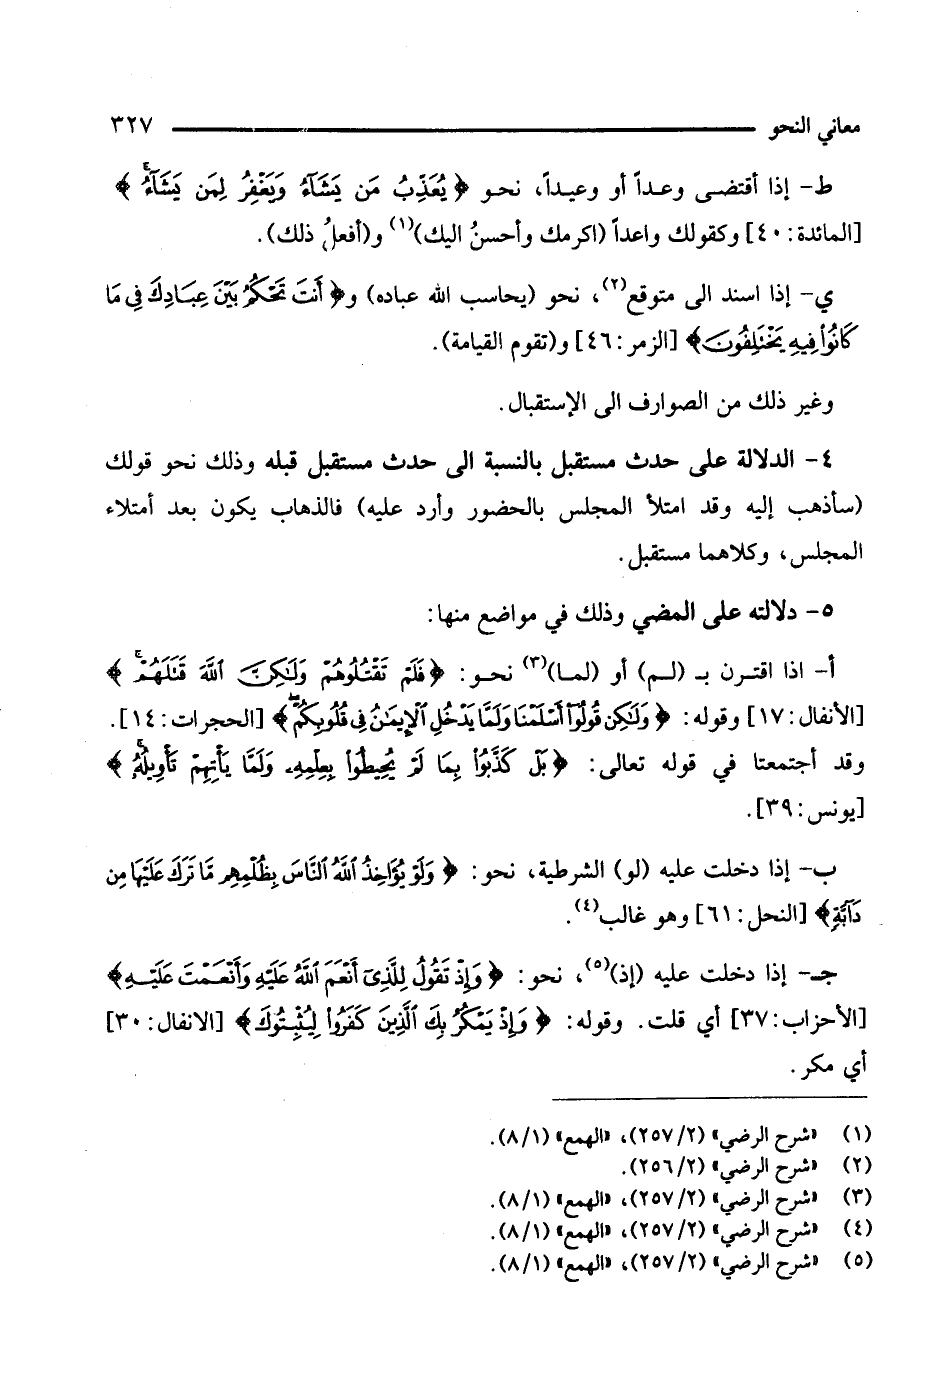 معاني النحو ٣٢٧
ط- إذا أقتضى وعداً أو وعيداً، نحو ﴿ يُعَذِّبُ مَن يَشَآءُ وَيَغْفِرُ لِمَن يَشَآءُ ﴾
[المائدة: ٤٠] وكقولك واعداً (اكرمك وأحسنُ اليك)(١) و(أفعلُ ذلك).
ي- إذا اسند الى متوقع(٢)، نحو (يحاسب الله عباده) و﴿ أَنتَ تَحْكُمُ بَيْنَ عِبَادِكَ فِى مَا
كَانُوا۟ فِيهِ يَخْتَلِفُونَ ﴾ [الزمر: ٤٦] و(تقوم القيامة).
وغير ذلك من الصوارف الى الإستقبال.
٤- الدلالة على حدث مستقبل بالنسبة الى حدث مستقبل قبله وذلك نحو قولك
(سأذهب إليه وقد امتلأ المجلس بالحضور وأرد عليه) فالذهاب يكون بعد أمتلاء
المجلس، وكلاهما مستقبل.
٥- دلالته على المضي وذلك في مواضع منها:
أ- اذا اقترن بـ (لم) أو (لما)(٣) نحو: ﴿ فَلَمْ تَقْتُلُوهُمْ وَلَٰكِنَّ ٱللَّهَ قَتَلَهُمْ ﴾
[الأنفال: ١٧] وقوله: ﴿ وَلَٰكِن قُولُوٓا۟ أَسْلَمْنَا وَلَمَّا يَدْخُلِ ٱلْإِيمَٰنُ فِى قُلُوبِكُمْ ﴾ [الحجرات: ١٤].
وقد أجتمعتا في قوله تعالى: ﴿ بَلْ كَذَّبُوا۟ بِمَا لَمْ يُحِيطُوا۟ بِعِلْمِهِۦ وَلَمَّا يَأْتِهِمْ تَأْوِيلُهُۥ ﴾
[يونس: ٣٩].
ب- إذا دخلت عليه (لو) الشرطية، نحو: ﴿ وَلَوْ يُؤَاخِذُ ٱللَّهُ ٱلنَّاسَ بِظُلْمِهِم مَّا تَرَكَ عَلَيْهَا مِن
دَآبَّةٍ ﴾ [النحل: ٦١] وهو غالب(٤).
جـ- إذا دخلت عليه (إذ)(٥)، نحو: ﴿ وَإِذْ تَقُولُ لِلَّذِىٓ أَنْعَمَ ٱللَّهُ عَلَيْهِ وَأَنْعَمْتَ عَلَيْهِ ﴾
[الأحزاب: ٣٧] أي قلت. وقوله: ﴿ وَإِذْ يَمْكُرُ بِكَ ٱلَّذِينَ كَفَرُوا۟ لِيُثْبِتُوكَ ﴾ [الانفال: ٣٠]
أي مكر.
(١) «شرح الرضي» (٢/ ٢٥٧)، «الهمع» (١/ ٨).
(٢) «شرح الرضي» (٢/ ٢٥٦).
(٣) «شرح الرضي» (٢/ ٢٥٧)، «الهمع» (١/ ٨).
(٤) «شرح الرضي» (٢/ ٢٥٧)، «الهمع» (١/ ٨).
(٥) «شرح الرضي» (٢/ ٢٥٧)، «الهمع» (١/ ٨).